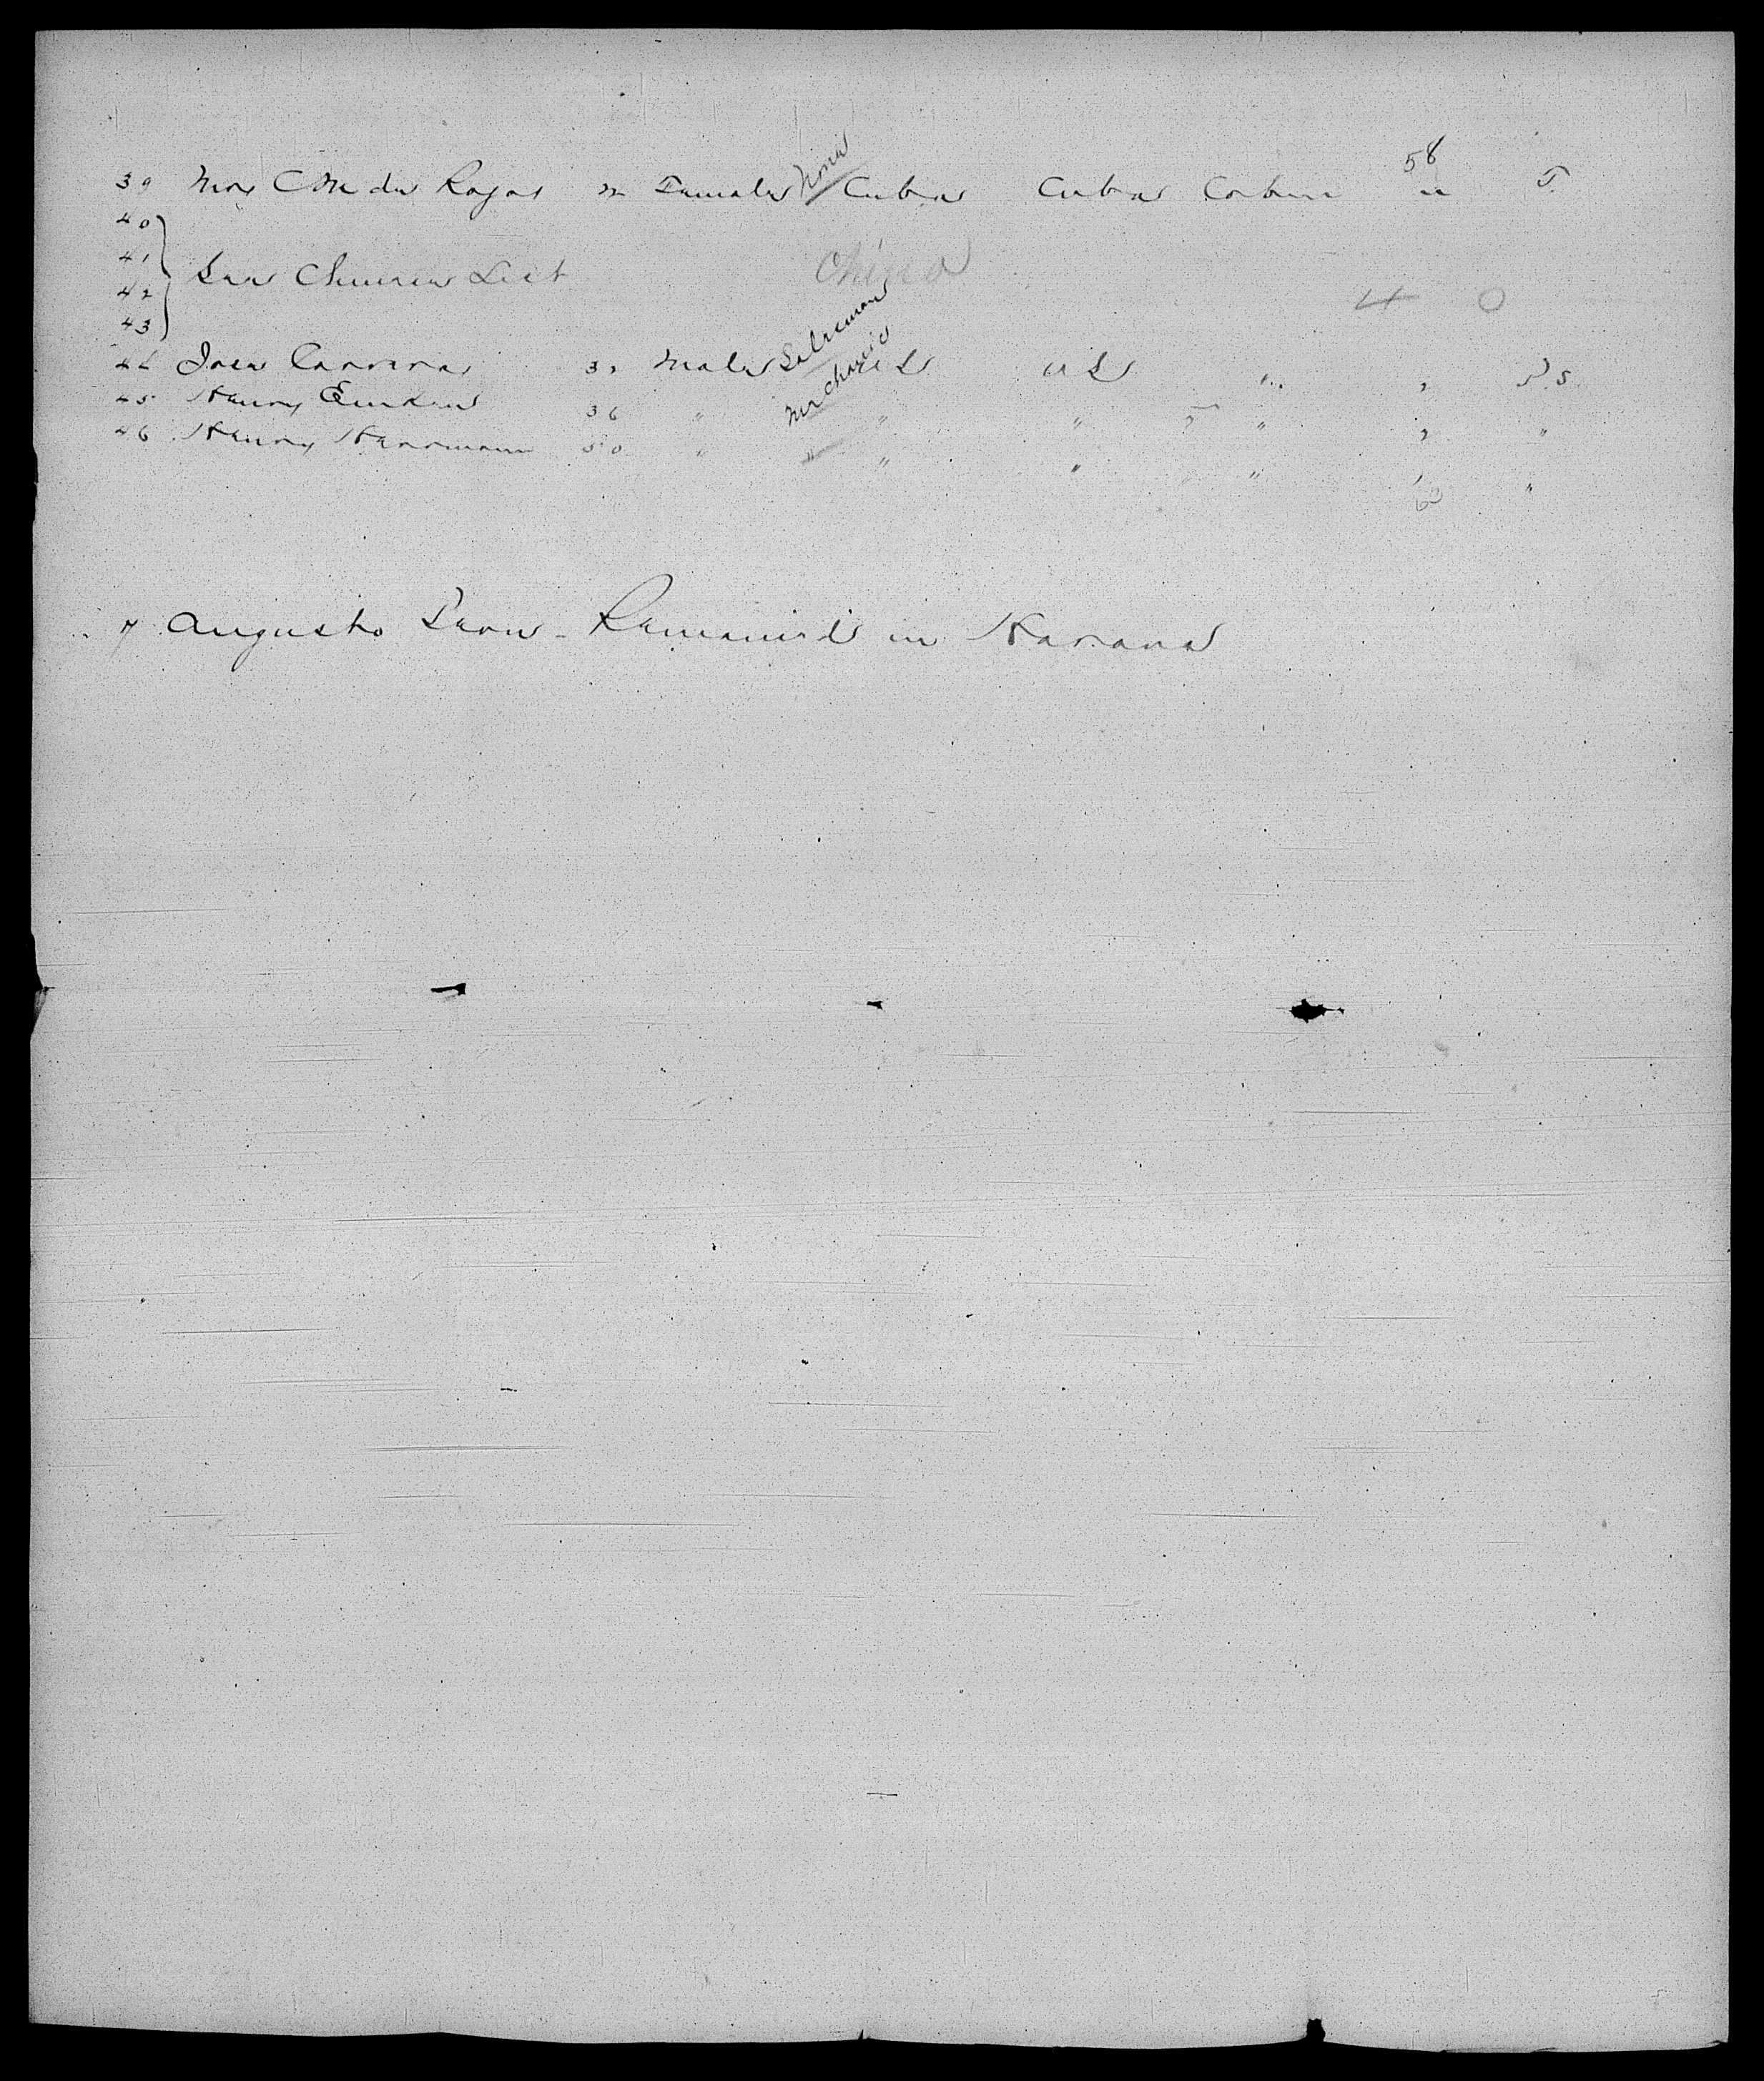 58
39 Mrs C M de Rojas m Female None Cuba Cuba Cabin " T.
40
41 See Chinese List China
42 4 0
43
44 Jose Carrera 3 Male Salesman U S U S " " P. S.
45 Henry 36 " Mechanic " " " "
46 Henry Herrmann 50 " " " " " "
Augusto Leon - Remained in Havana